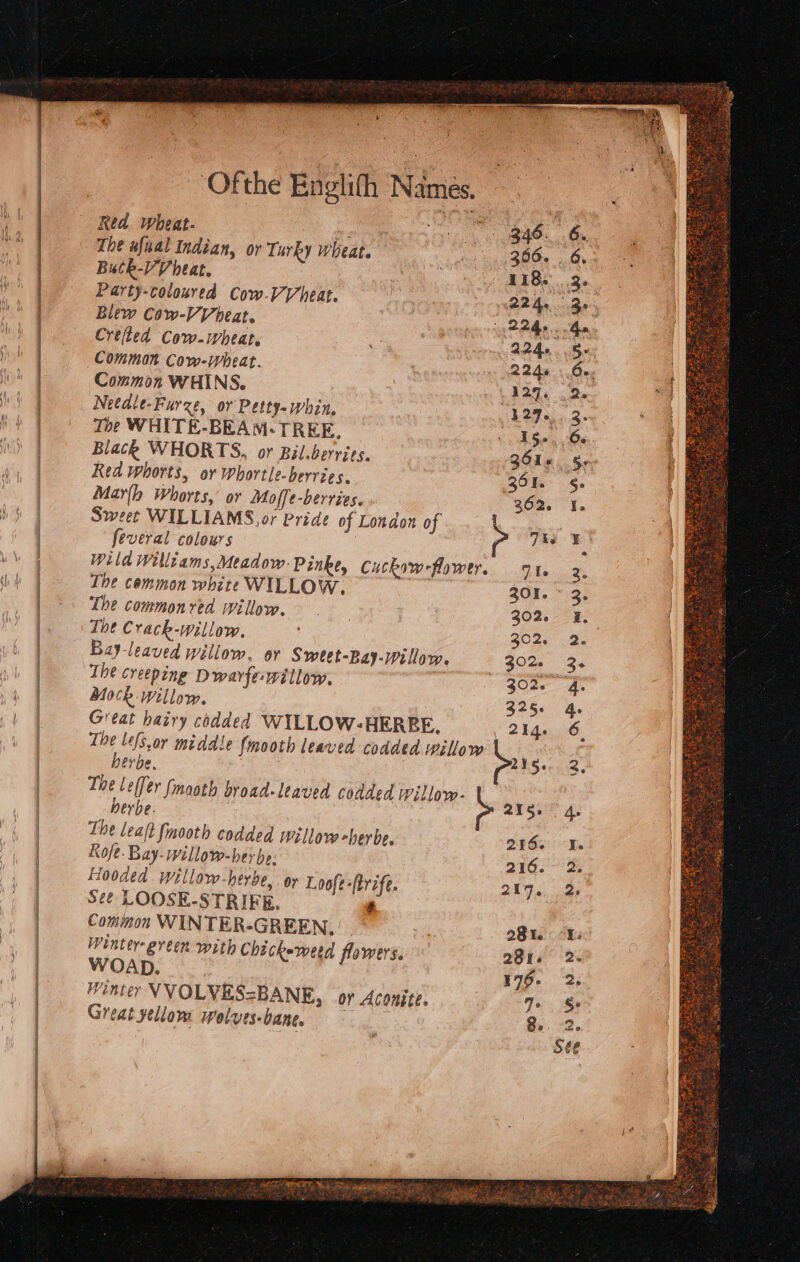 Of the Engliſh Names.
Red Wheat. 346. 6.
The uſual Indian, or Turky Wheat. 366. 6.
Buck-VVheat. 118. 3.
Party-coloured Cow-VVheat. 224. 3.
Blew Cow-VVheat. 224. 4.
Creſted Cow-wheat. 224. 5.
Common Cow-wheat. 224. 6.
Common WHINS. 127. 2.
Needle-Furze, or Petty-whin. 127. 3.
The WHITE-BEAM-TREE. 15. 6.
Black WHORTS, or Bil-berries. 361. 5.
Red Whorts, or Whortle-berries. 361. 5.
Marſh Whorts, or Moſſe-berries. 362. 1.
Sweet WILLIAMS, or Pride of London of
ſeveral colours } 71. 1
Wild Williams, Meadow-Pinke, Cuckow-flower. 71. 3.
The common white WILLOW. 301. 3.
The common red Willow. 302. 1.
The Crack-willow. 302. 2.
Bay-leaved willow, or Sweet-Bay-willow. 302. 3.
The creeping Dwarfe-willow. 302. 4.
Mock-willow. 325. 4.
Great hairy codded WILLOW-HERBE. 214. 6.
The leſs, or middle ſmooth leaved codded willow
herbe. } 215. 3.
The leſſer ſmooth broad-leaved codded willow-
herbe. } 215. 4.
The leaſt ſmooth codded willow-herbe. 216. 1.
Roſe-Bay-willow-herbe. 216. 2.
Hooded willow-herbe, or Looſe-ſtrife. 217. 2.
See LOOSE-STRIFE.
Common WINTER-GREEN. 281. 1.
Winter-green with Chickeweed flowers. 281. 2.
WOAD. 176. 2.
Winter VVOLVES-BANE, or Aconite. 7. 5.
Great yellow Wolves-bane. 8. 2.
See